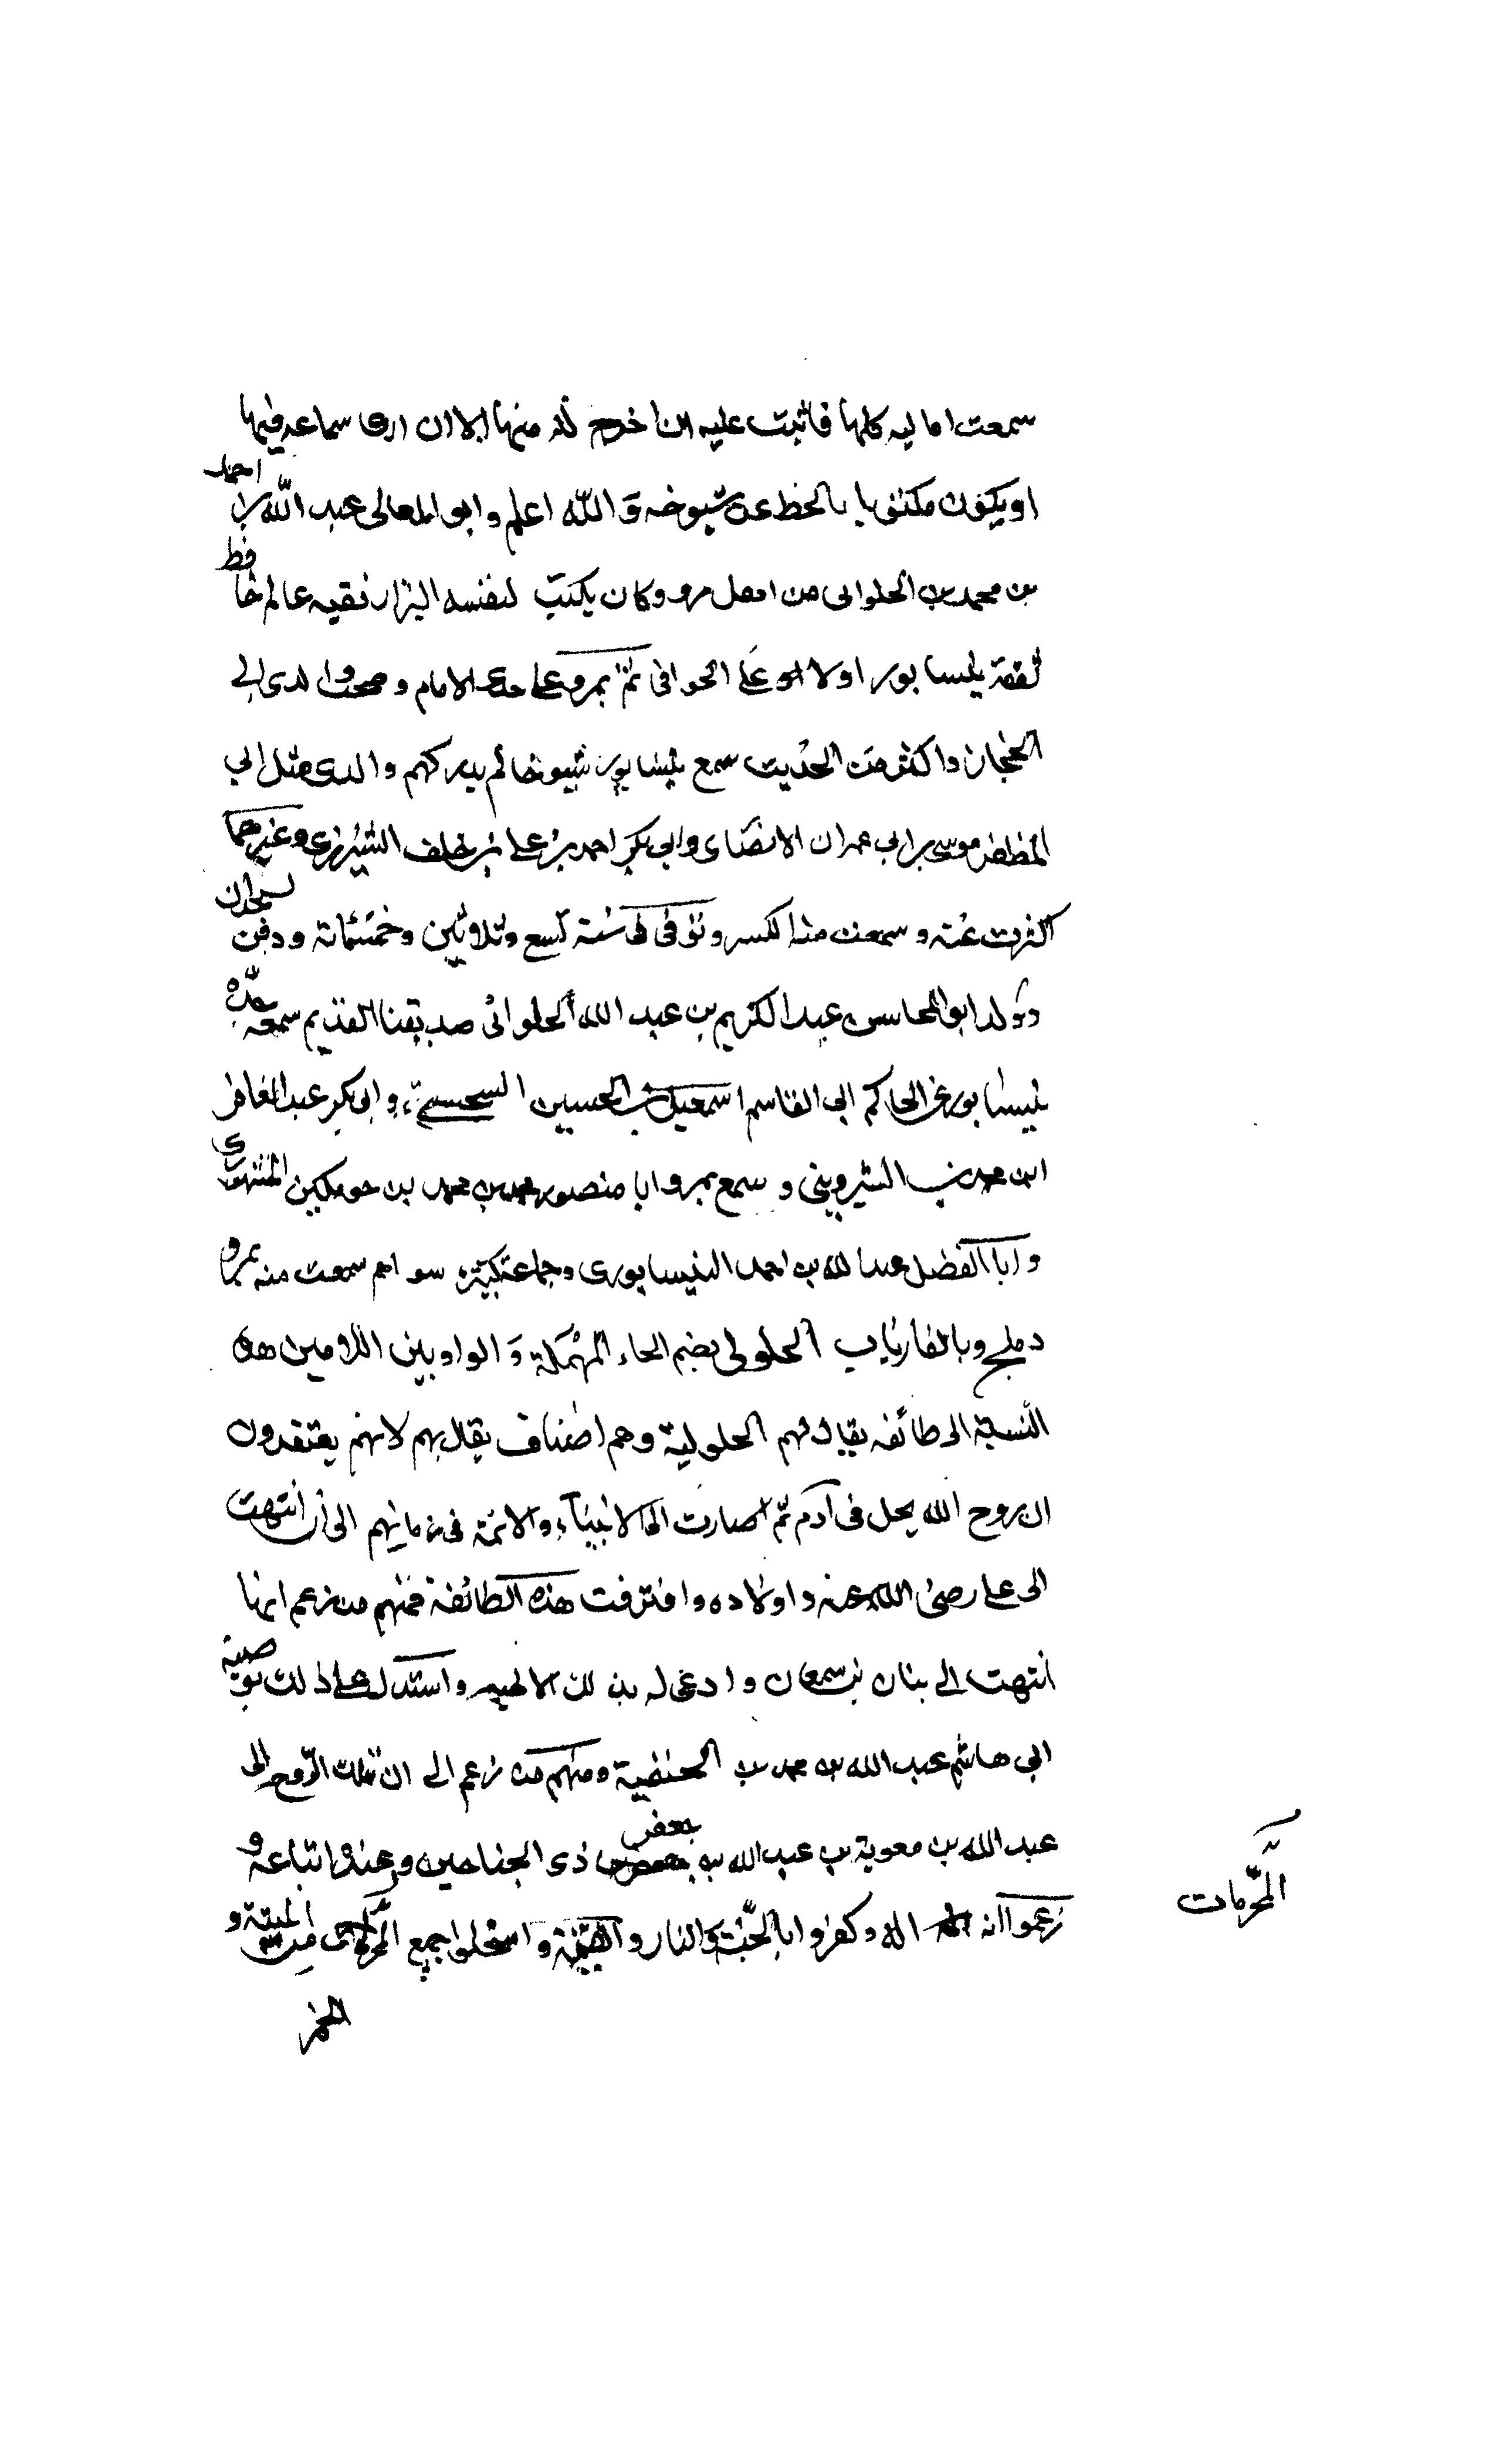 سمعت اماليه كلها فاثبت عليه ان اخرج له منها الا ان ارى سماعه فيها
او يكون مكتوبا بالخط عن شيوخه وَالله اعلم وابو المعالى عبد الله بن احمد
بن محمد بن الحلوانى من اهل مرو وكان يكتب لنفسه البزار فقيه عالم حافظ
تفقه بنيسابور اولا على الحوافى ثم بمرو على الامام وصحب والدى الى
الحجاز واكثر من الحديث سمع بنيسابور شيوخا لم يدركهم والدى مثل ابي
المظفر موسى بن ابي عمران الانصارى وابي بكر احمد بن على بن خلف الشيرازى وغيرهما
اكثرت عنه وسمعت منه الكثير وتوفى في سنة تسع وثلاثين وخمسمائة ودفن
وولد ابو المحاسن عبد الكريم بن عبد الله الحلوائى صديقنا القديم سمعه جده
بنيسابور عن الحاكم ابي القاسم اسمعيل بن الحسين وابي بكر عبد الغافر
ابن محمد بن الشيرويى وسمع بمرو ابا منصور محمد بن محمد بن
وابا الفضل عبد الله بن احمد النيسابورى وجماعة كثيرة سواهم سمعت منه بمرو
وبلخ وبالفارياب الحلولى بضم الحاء المهملة وَالواو بين اللامين هذه
النسبة الى طائفه يقال لهم الحلولية وهم اصناف يقال بهم لانهم يعتقدون
ان روح الله يحل فى آدم ثم صارت الى الانبيآء والائمة فى زمانهم الى ان انتهت
الى على رضى الله عنه واولاده وافترقت هذه الطائفة فمنهم من زعم انها
انتهت الى بنان بن سمعان وادعى له بذلك الالهيه واستدل على ذلك بوصية
ابي هاشم عبد الله بن محمد بن الحنفية ومنهم من زعم الى ان تلك الروح الى
عبد الله بن معوية بن عبد الله بن جعفر ذى الجناحين وعنده اتباعه و
زعموا انه اله وكفروا بالجنة والنار والقيمة واستحلوا جميع المحرمات من الميتة و
المحرمات
الخمر